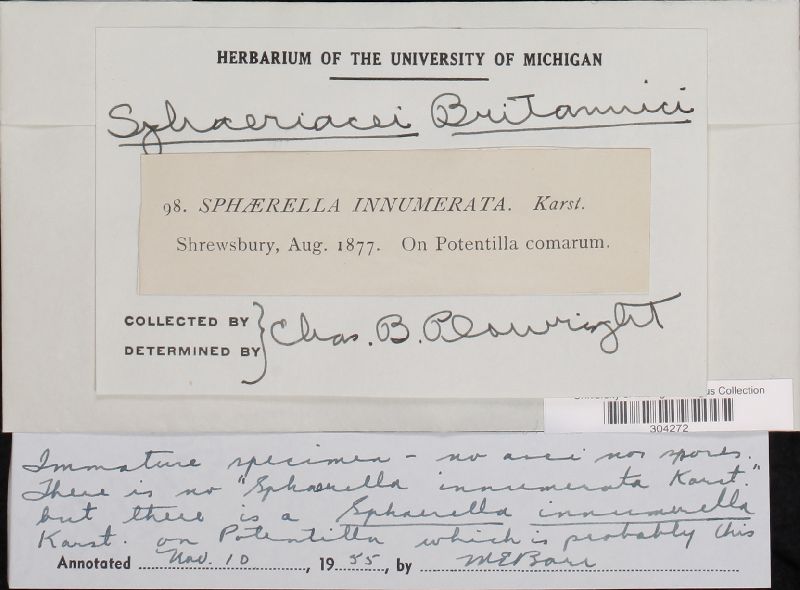 HERBARIUM OF THE UNIVERSITY OF MICHIGAN
Sphaeriacei Britannici
98. SPHÆRELLA INNUMERATA. Karst.
Shrewsbury, Aug. 1877. On Potentilla comarum.
COLLECTED BY
DETERMINED BY
Chas. B. Plowright
us Collection
304272
Immature specimen - no asci nor spores.
There is no "Sphaerella innumerata Karst."
but there is a Sphaerella innumerella
Karst. on Potentilla which is probably this
Annotated Nov. 10, 1955, by MEBarr